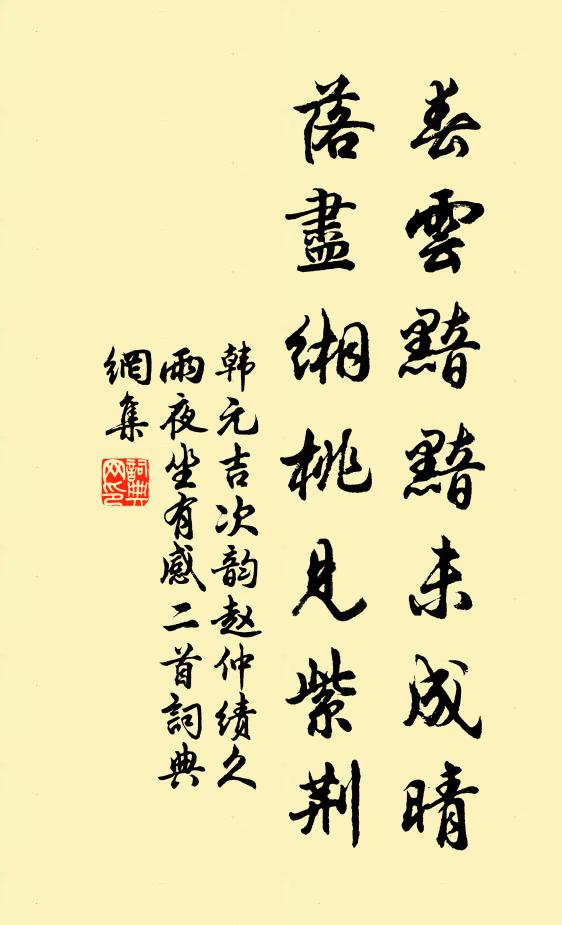 春雲黯黯未成晴
落盡緗桃見紫荆
韩元吉次韵赵仲绩久
雨夜坐有感二首詞典
網集
詞典
网印